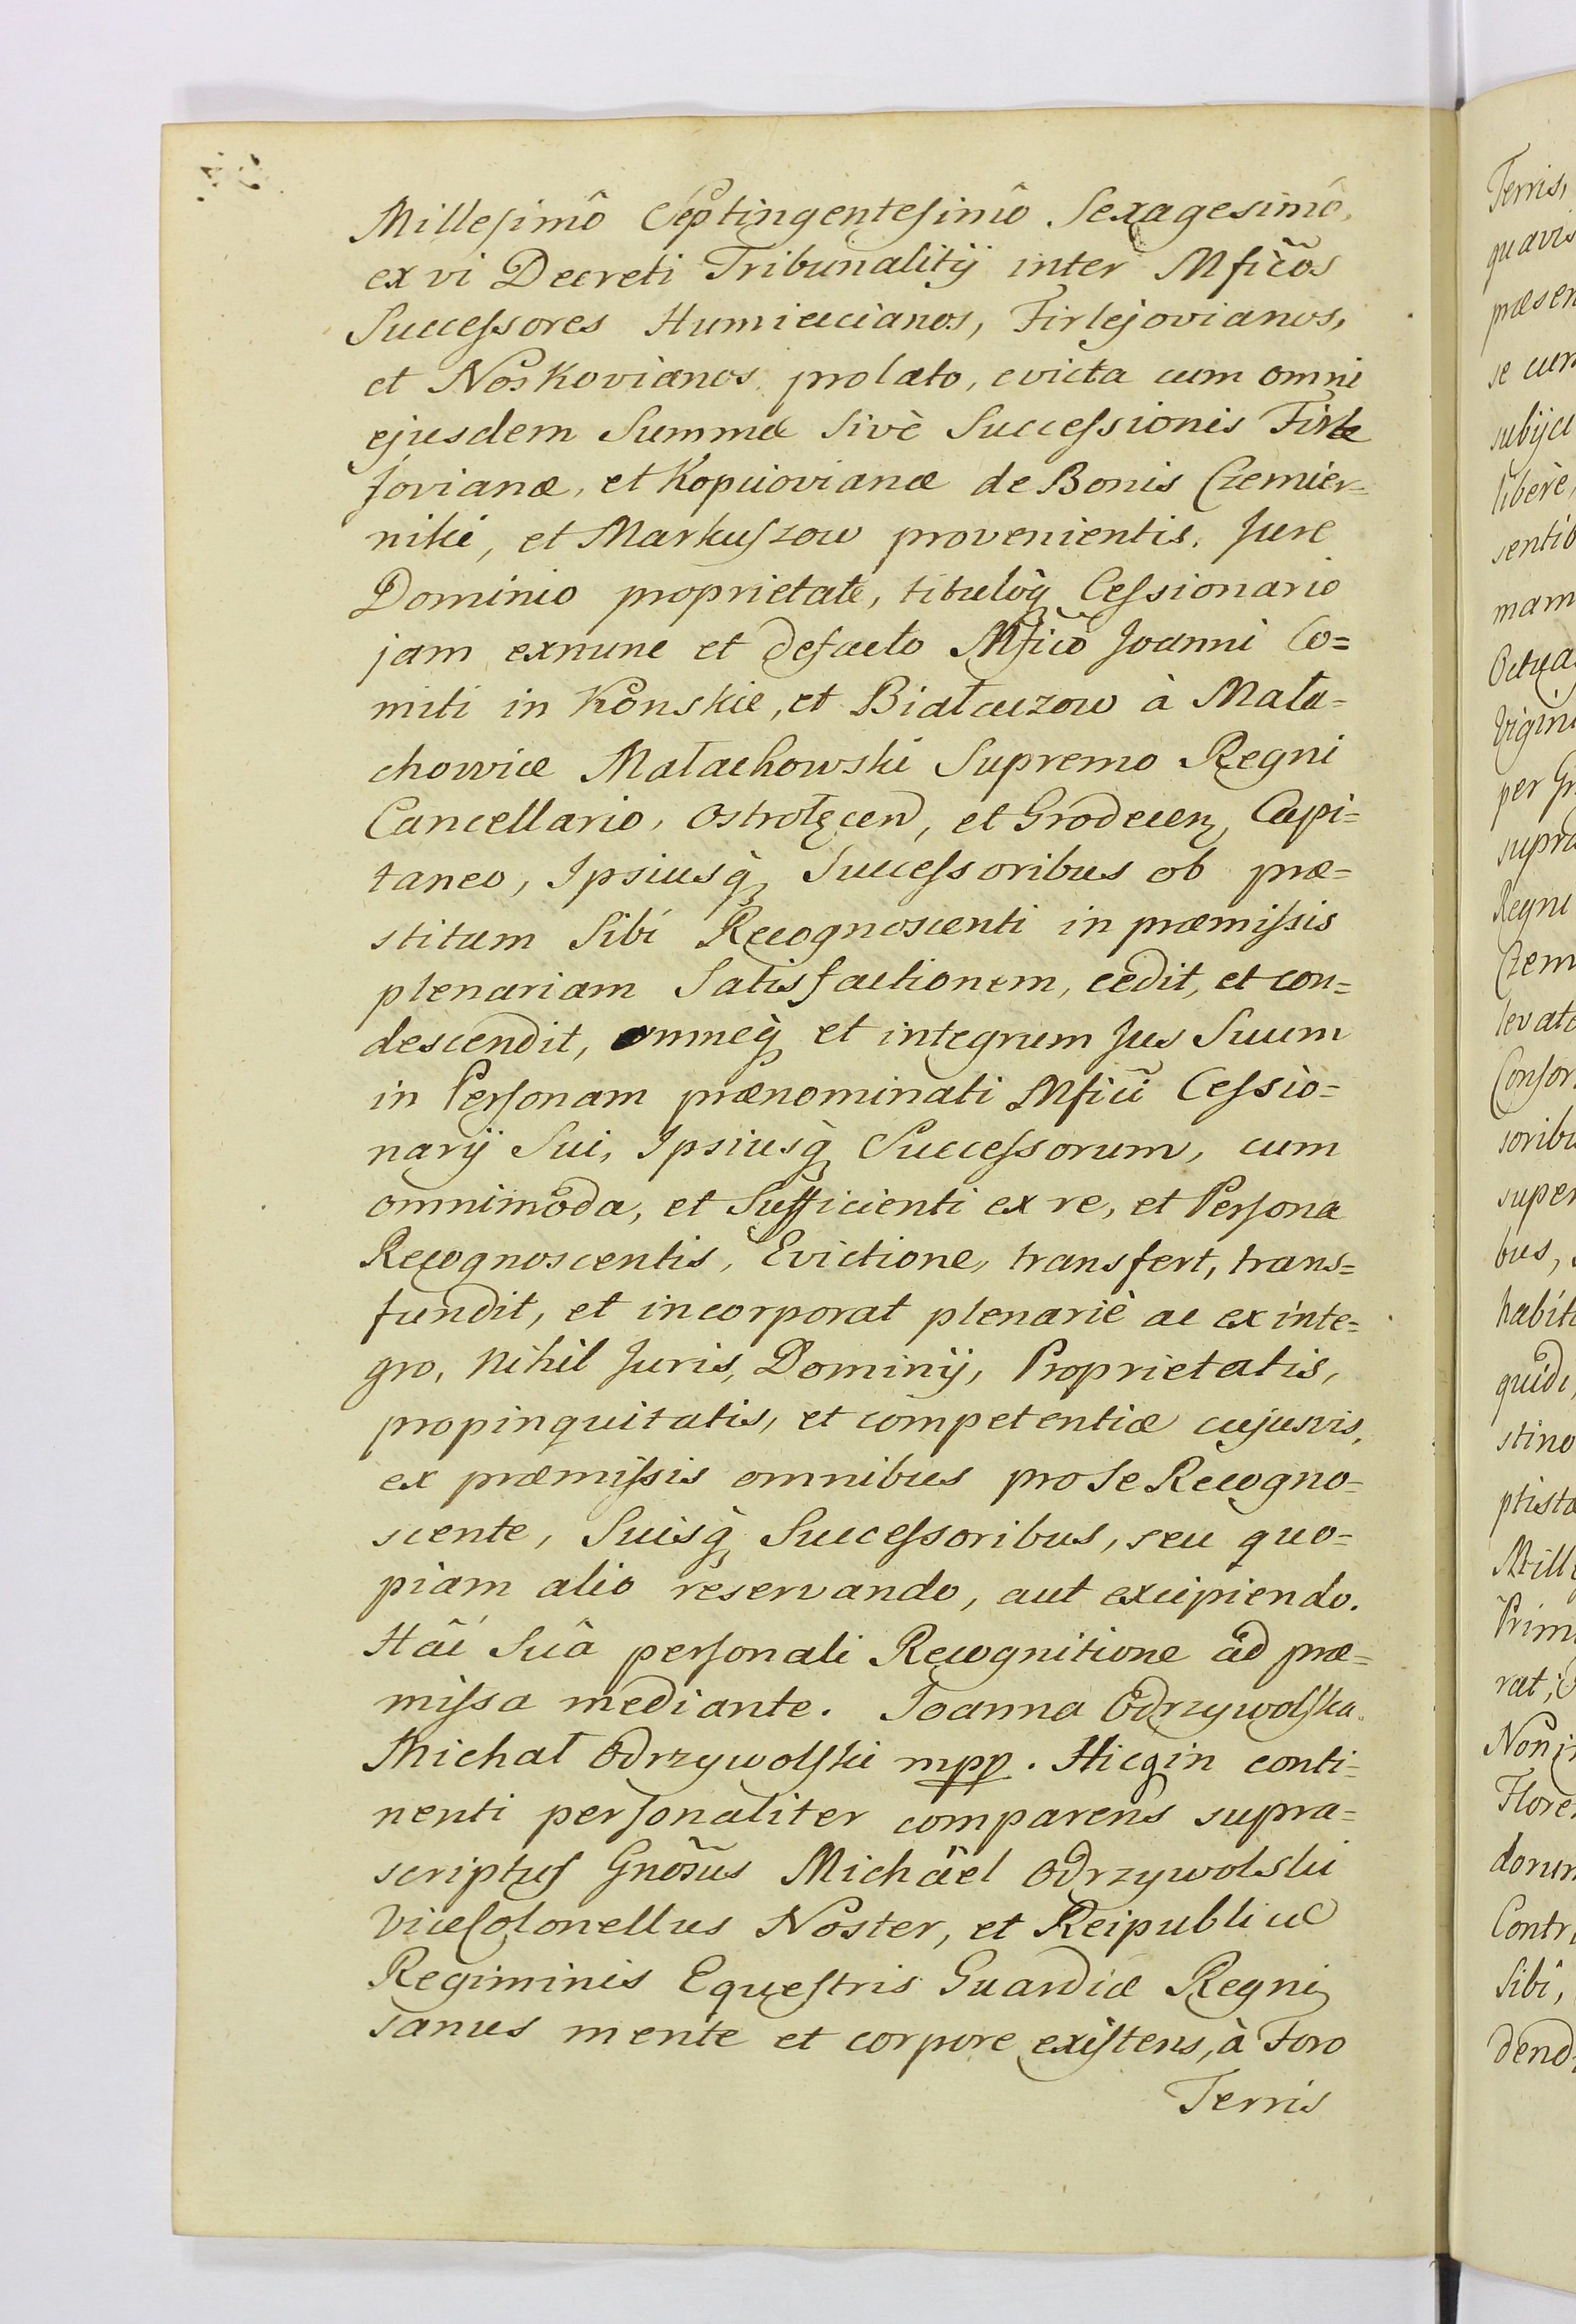 Millesimô Septingentesimô Sexagesimô,
ex vi Decreti Tribunalitÿ inter Mficõs
Successores Humieccianos, Firlejovianos,
et Noskovianos prolato, evicta cum omni
ejusdem Summæ Sivè Successionis Firle
jovianæ, et Kopciovianæ de Bonis Czemier=
niki, et Markuszow provenientis, Jure
Dominio proprietate, tituloq̀ Cessionario
jam exnunc et defacto Mficõ Joanni Co=
miti in Końskie, et Białaczow à Mała=
chowice Małachowski Supremo Regni
Cancellario, Ostrołęcen, et Grodecen, Capi=
taneo, Ipsiusq̀ Successoribus ob præ=
stitam Sibi Recognoscenti in præmissis
plenariam Satisfactionem, cedit, et con=
descendit, omneq̀ et integrum Jus Suum
in Personam prænominati Mfici Cessio=
narÿ Sui, Ipsiusq̀ Successorum, cum
omnimoda, et Sufficienti ex re, et Persona
Recognoscentis, Evictione, transfert, trans=
fundit, et incorporat plenariè ac ex inte=
gro, nihil Juris, Dominÿ, Proprietatis,
propinquitatis, et competentiæ cujusvis,
ex præmissis omnibus pro se Recogno=
scente, Suisq̀ Successoribus, seu quo=
piam alio reservando, aut excipiendo.
Hâc Suâ personali Recognitione ad præ=
missa mediante. Joanna Odrzywolska.
Michał Odrzywolski mpp. Hicq in conti=
nenti personaliter comparens supra=
scriptus Gnosus Michäel Odrzywolski
ViceColonellus Noster, et Reipublicæ
Regiminis Equestris Guardiæ Regni
sanus mente et corpore existens, à Foro
Terris
Terris,
quavis
præsen
se cum
subijci
liberè,
sentib
mam
Octua
Vigin
per G
supra
Regni
Czem
levato
Consor
soribu
super
bus,
habit
quid
stino
ptista
Mill
Prim
rat;
Non
Flore
dorum
Contr
Sibi,
dend